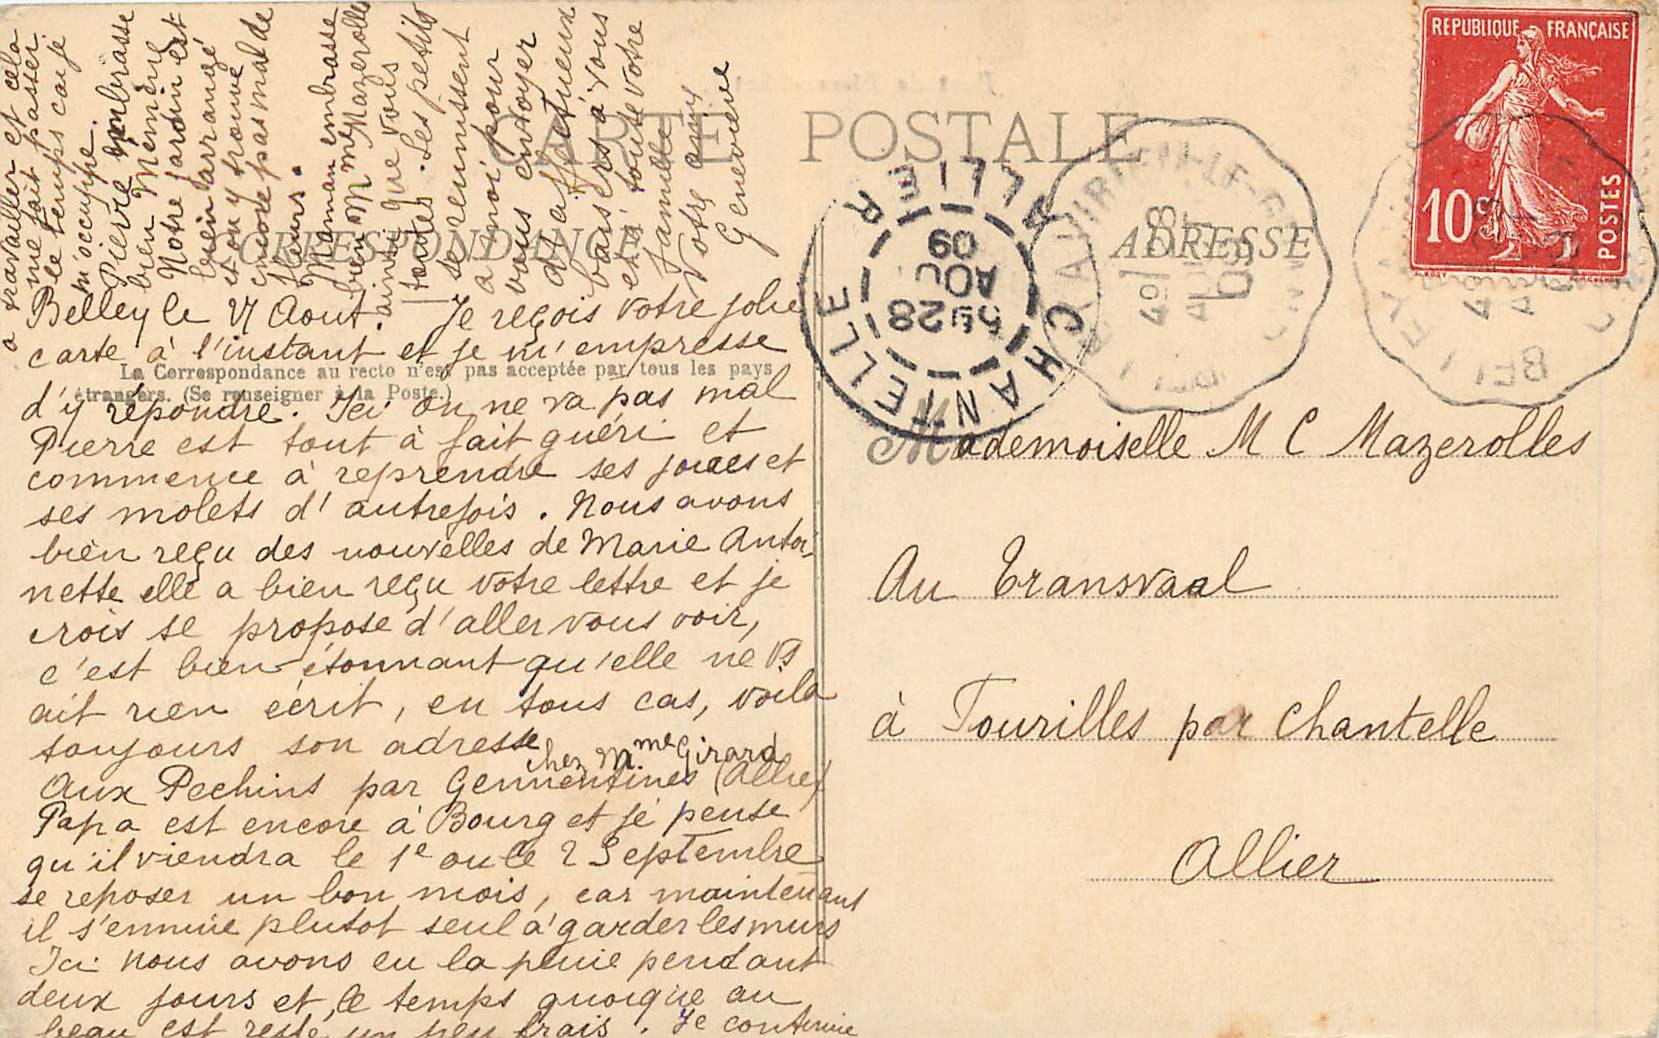 CARTE POSTALE
CORRESPONDANCE
ADRESSE
La Correspondance au recto n'est pas acceptée par tous les pays
étrangers. (Se renseigner à la Poste.)
REPUBLIQUE FRANÇAISE
10c
POSTES
CHANTELLE
ALLIER
28
AOU
09
Belley le 27 Aout. Je reçois votre jolie
carte à l'instant et je m'empresse
d'y répondre. Ici on ne va pas mal
Pierre est tout à fait guéri et
commence à reprendre ses joues et
ses molets d'autrefois. Nous avons
bien reçu des nouvelles de Marie Antoi-
nette elle a bien reçu votre lettre et je
crois se propose d'aller vous voir,
c'est bien étonnant qu'elle ne vs
ait rien écrit, en tous cas, voila
toujours son adresse
chez Mme Girard
Aux Pechins par Gennentines (Allier)
Papa est encore à Bourg et je pense
qu'il viendra le 1e ou le 2 Septembre
se reposer un bon mois, car maintenant
il s'ennuie plutot seul à garder les murs
Ici nous avons eu la pluie pendant
deux jours et, le temps quoique au
beau est resté un peu frais. Je continue
a travailler et cela
me fait passer
le temps car je
m'occupe.
Pierre embrasse
bien Mémère
Notre jardin est
bien arrangé
et on y trouve
encore pas mal de
fleurs.
Maman embrasse
bien Mme Mazerolles
ainsi que vous
toutes. Les petits
se reunissent
a moi pour
vous envoyer
d'affectueux
baisers à vous
et à toute votre
famille
Votre amie
Genevieve
Mademoiselle M C Mazerolles
Au Transvaal
à Fourilles par Chantelle
Allier